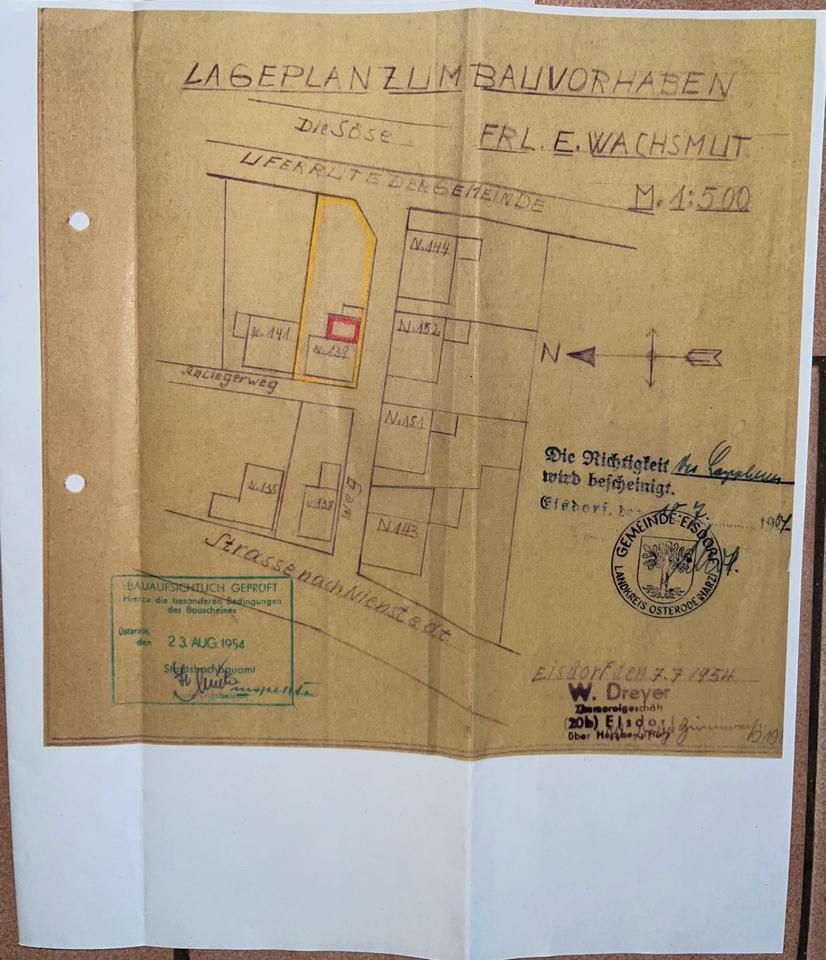 LAGEPLAN ZUM BAUVORHABEN
Die Söse
FRL. E. WACHSMUT
UFERRUTE DER GEMEINDE
M. 1:500
N.144
N.152
N.141
N.139
N
Anliegerweg
N.151
N.135
N.138
Weg
N.143
Die Richtigkeit des
wird bescheinigt.
Eisdorf, den
GEMEINDE EISDORF
LANDKREIS OSTERODE (HARZ)
Strasse nach Nienstedt
BAUAUFSICHTLICH GEPRÜFT
Hierzu die besonderen Bedingungen
des Bauscheines
Osterode,
den 23. AUG. 1954
Staatshochbauamt
Eisdorf den 7.7 1954
W. Dreyer
Zimmereigeschäft
(20b) Eisdorf
über